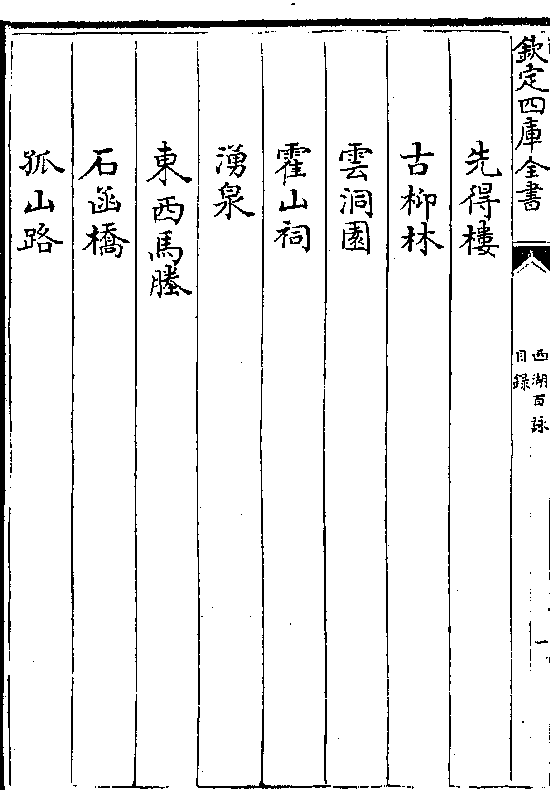 欽定四庫全書
西湖百詠
目錄
一
先得樓
古柳林
雲洞園
霍山祠
湧泉
東西馬塍
石函橋
孤山路